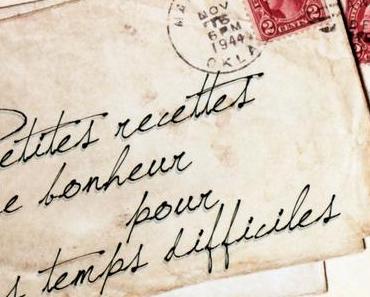 NOV
15
6 PM
1944
OKLA
2 CENTS 2
Petites recettes
e bonheur
pour
s temps difficiles